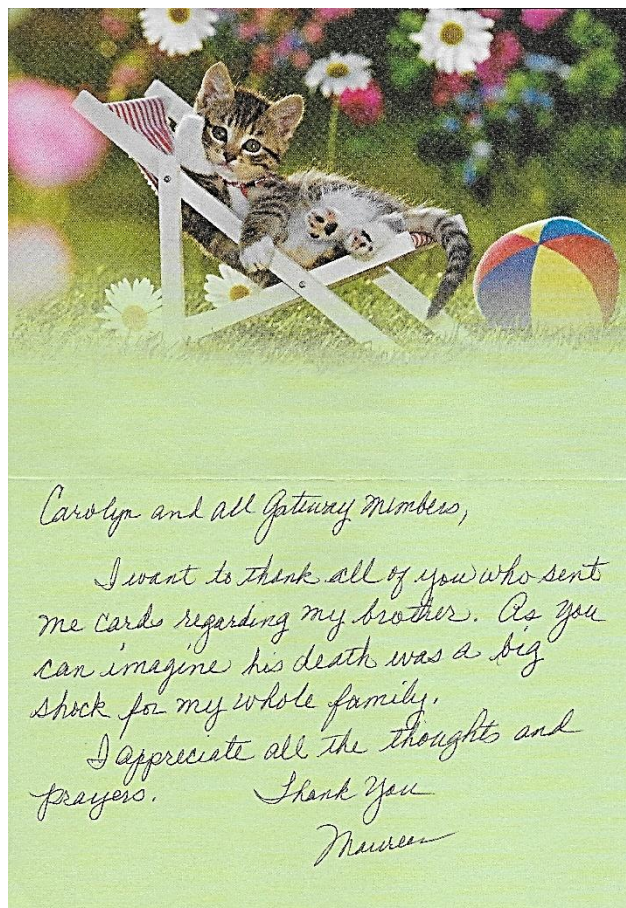 Carolyn and all Gateway Members,
I want to thank all of you who sent
me cards regarding my brother. As you
can imagine his death was a big
shock for my whole family.
I appreciate all the thoughts and
prayers. Thank You
Maureen